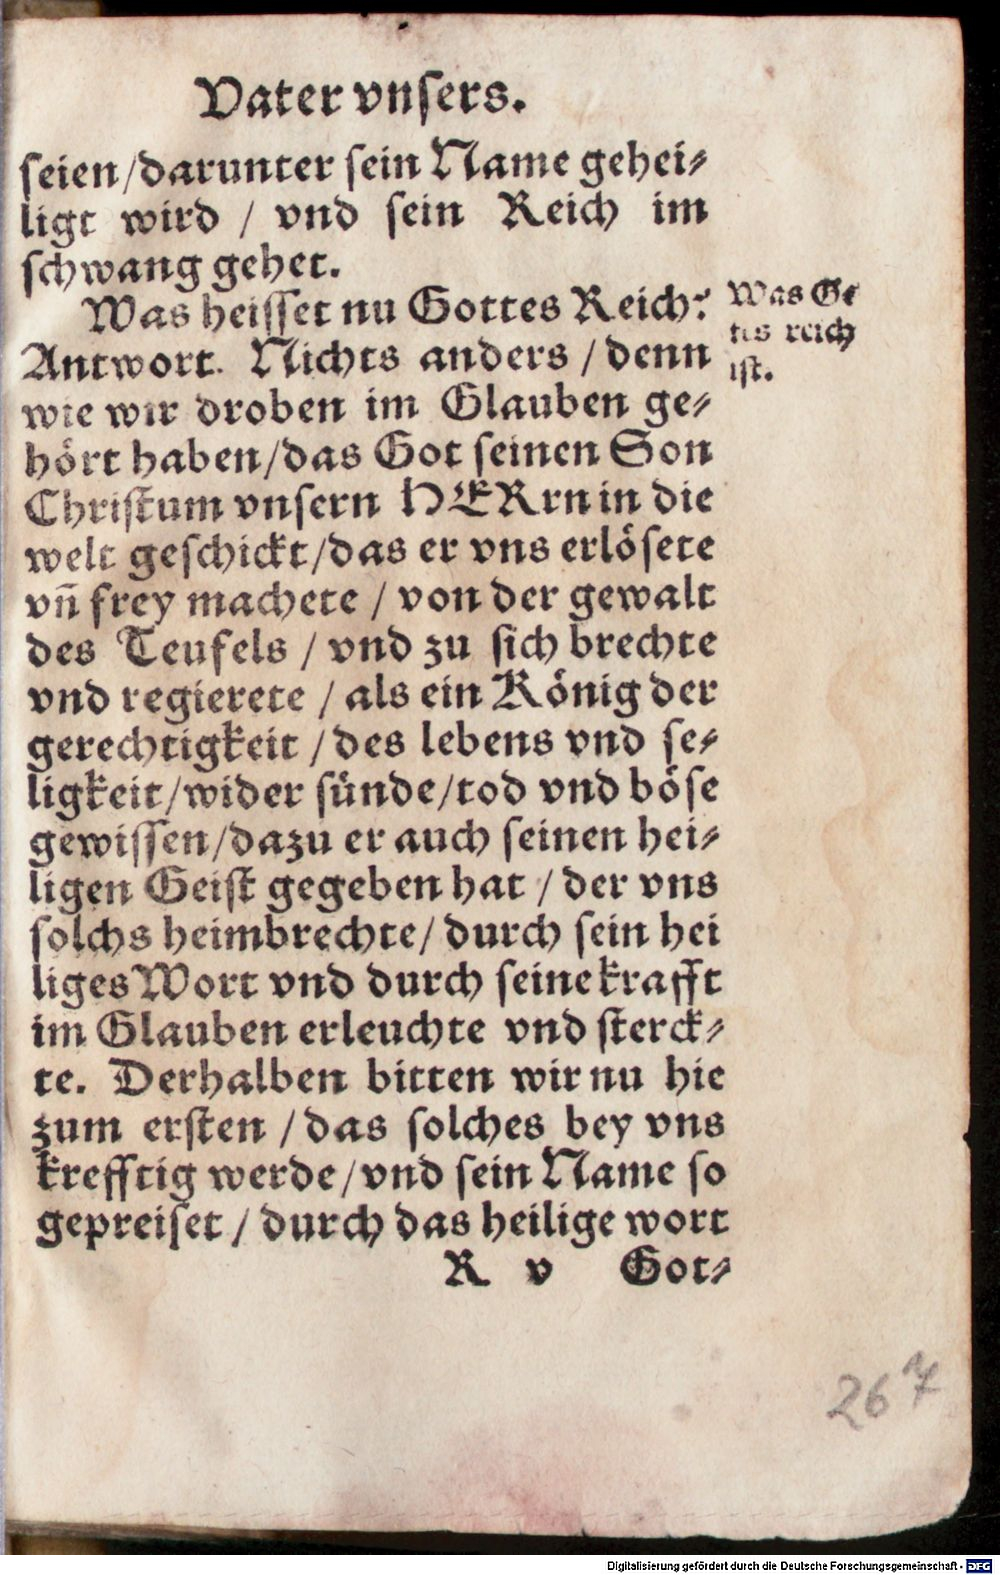 Vater vnsers.
seien/darunter sein Name gehei⸗
ligt wird / vnd sein Reich im
schwang gehet.
Was heisset nu Gottes Reich?
Antwort. Nichts anders / denn
wie wir droben im Glauben ge⸗
hört haben/das Got seinen Son
Christum vnsern HERrn in die
welt geschickt/das er vns erlösete
vñ frey machete / von der gewalt
des Teufels / vnd zu sich brechte
vnd regierete / als ein König der
gerechtigkeit / des lebens vnd se⸗
ligkeit/wider sünde/tod vnd böse
gewissen/dazu er auch seinen hei⸗
ligen Geist gegeben hat / der vns
solchs heimbrechte/ durch sein hei
liges Wort vnd durch seine krafft
im Glauben erleuchte vnd sterck⸗
te. Derhalben bitten wir nu hie
zum ersten / das solches bey vns
krefftig werde/vnd sein Name so
gepreiset / durch das heilige wort
R v Got⸗
Was Go
tis reich
ist.
267
Digitalisierung gefördert durch die Deutsche Forschungsgemeinschaft - DFG